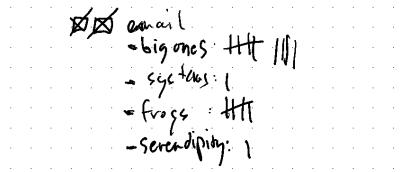 email
- big ones: 𝍸 ||||
- systems: |
- frogs: 𝍸
- serendipity: |